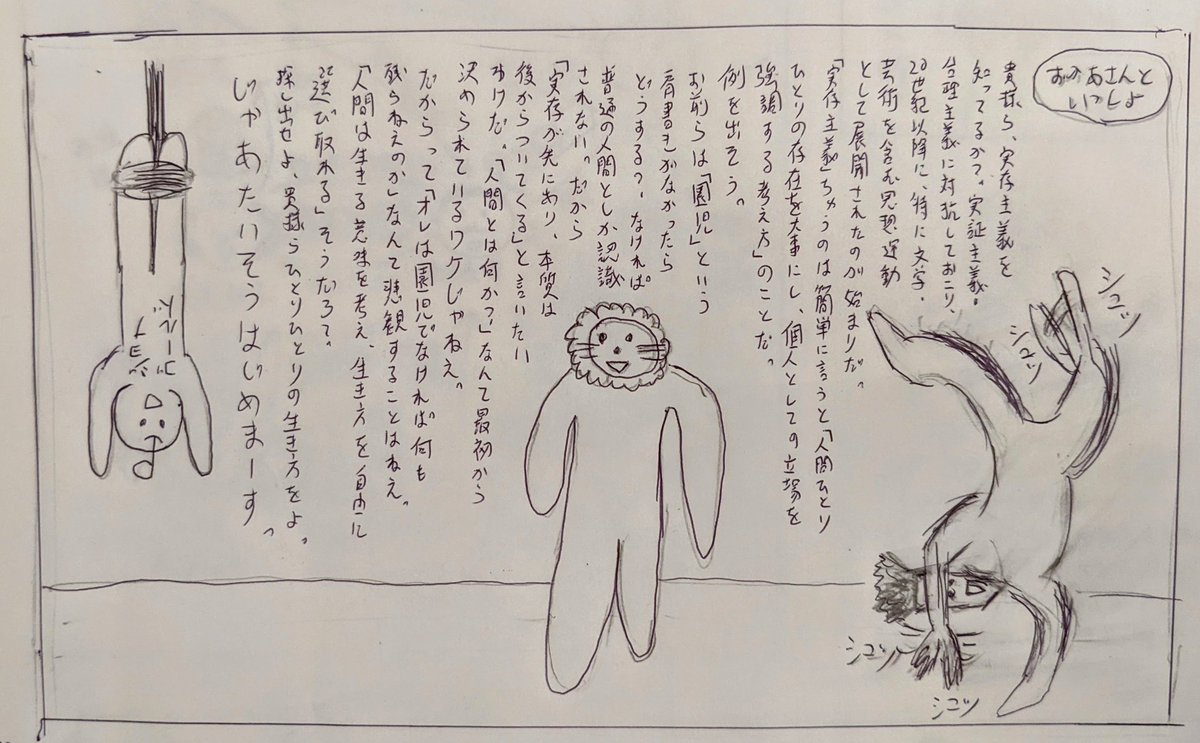 おかあさんと
いっしょ
貴様ら、実存主義を
知ってるか?。実証主義・
合理主義に対抗しておこり、
20世紀以降に、特に文学・
芸術を含む思想運動
として展開されたのが始まりだ。
「実存主義」ちゅうのは簡単に言うと「人間ひとり
ひとりの存在を大事にし、個人としての立場を
強調する考え方」のことだ。
例を出そう。
お前らは「園児」という
肩書きがなかったら
どうする?。なければ
普通の人間としか認識
されない。だから
「実存が先にあり、本質は
後からついてくる」と言いたい
わけだ。「人間とは何か?」なんて最初から
決められているワケじゃねえ。
だからって「オレは園児でなければ何も
残らねえのか」なんて悲観することはねえ。
「人間は生きる意味を考え、生き方を自由に
選び取れる」そうだろ?。
探し出せよ、貴様らひとりひとりの生き方をよ。
じゃあたいそうはじめまーす。
シュッ
シュッ
シュッ
シュッ